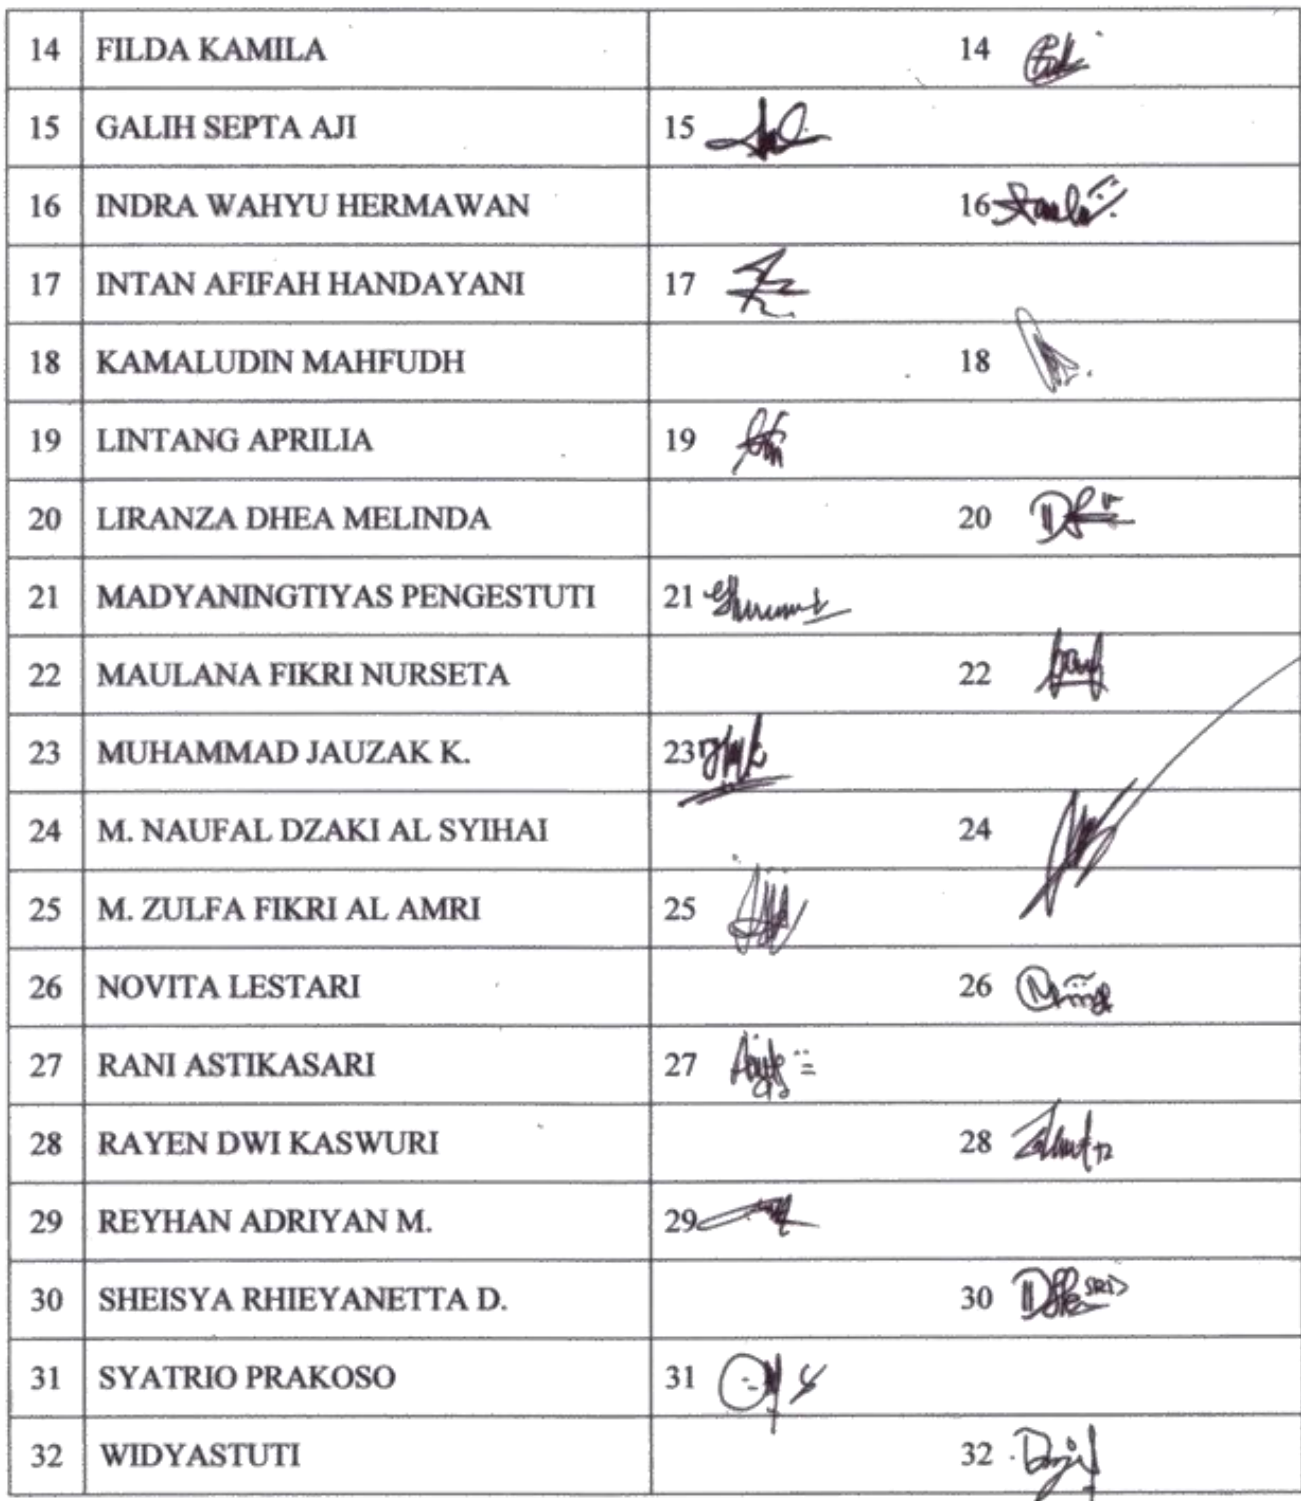 14 FILDA KAMILA 14
15 GALIH SEPTA AJI 15
16 INDRA WAHYU HERMAWAN 16
17 INTAN AFIFAH HANDAYANI 17
18 KAMALUDIN MAHFUDH 18
19 LINTANG APRILIA 19
20 LIRANZA DHEA MELINDA 20
21 MADYANINGTIYAS PENGESTUTI 21
22 MAULANA FIKRI NURSETA 22
23 MUHAMMAD JAUZAK K. 23
24 M. NAUFAL DZAKI AL SYIHAI 24
25 M. ZULFA FIKRI AL AMRI 25
26 NOVITA LESTARI 26
27 RANI ASTIKASARI 27
28 RAYEN DWI KASWURI 28
29 REYHAN ADRIYAN M. 29
30 SHEISYA RHIEYANETTA D. 30
31 SYATRIO PRAKOSO 31
32 WIDYASTUTI 32